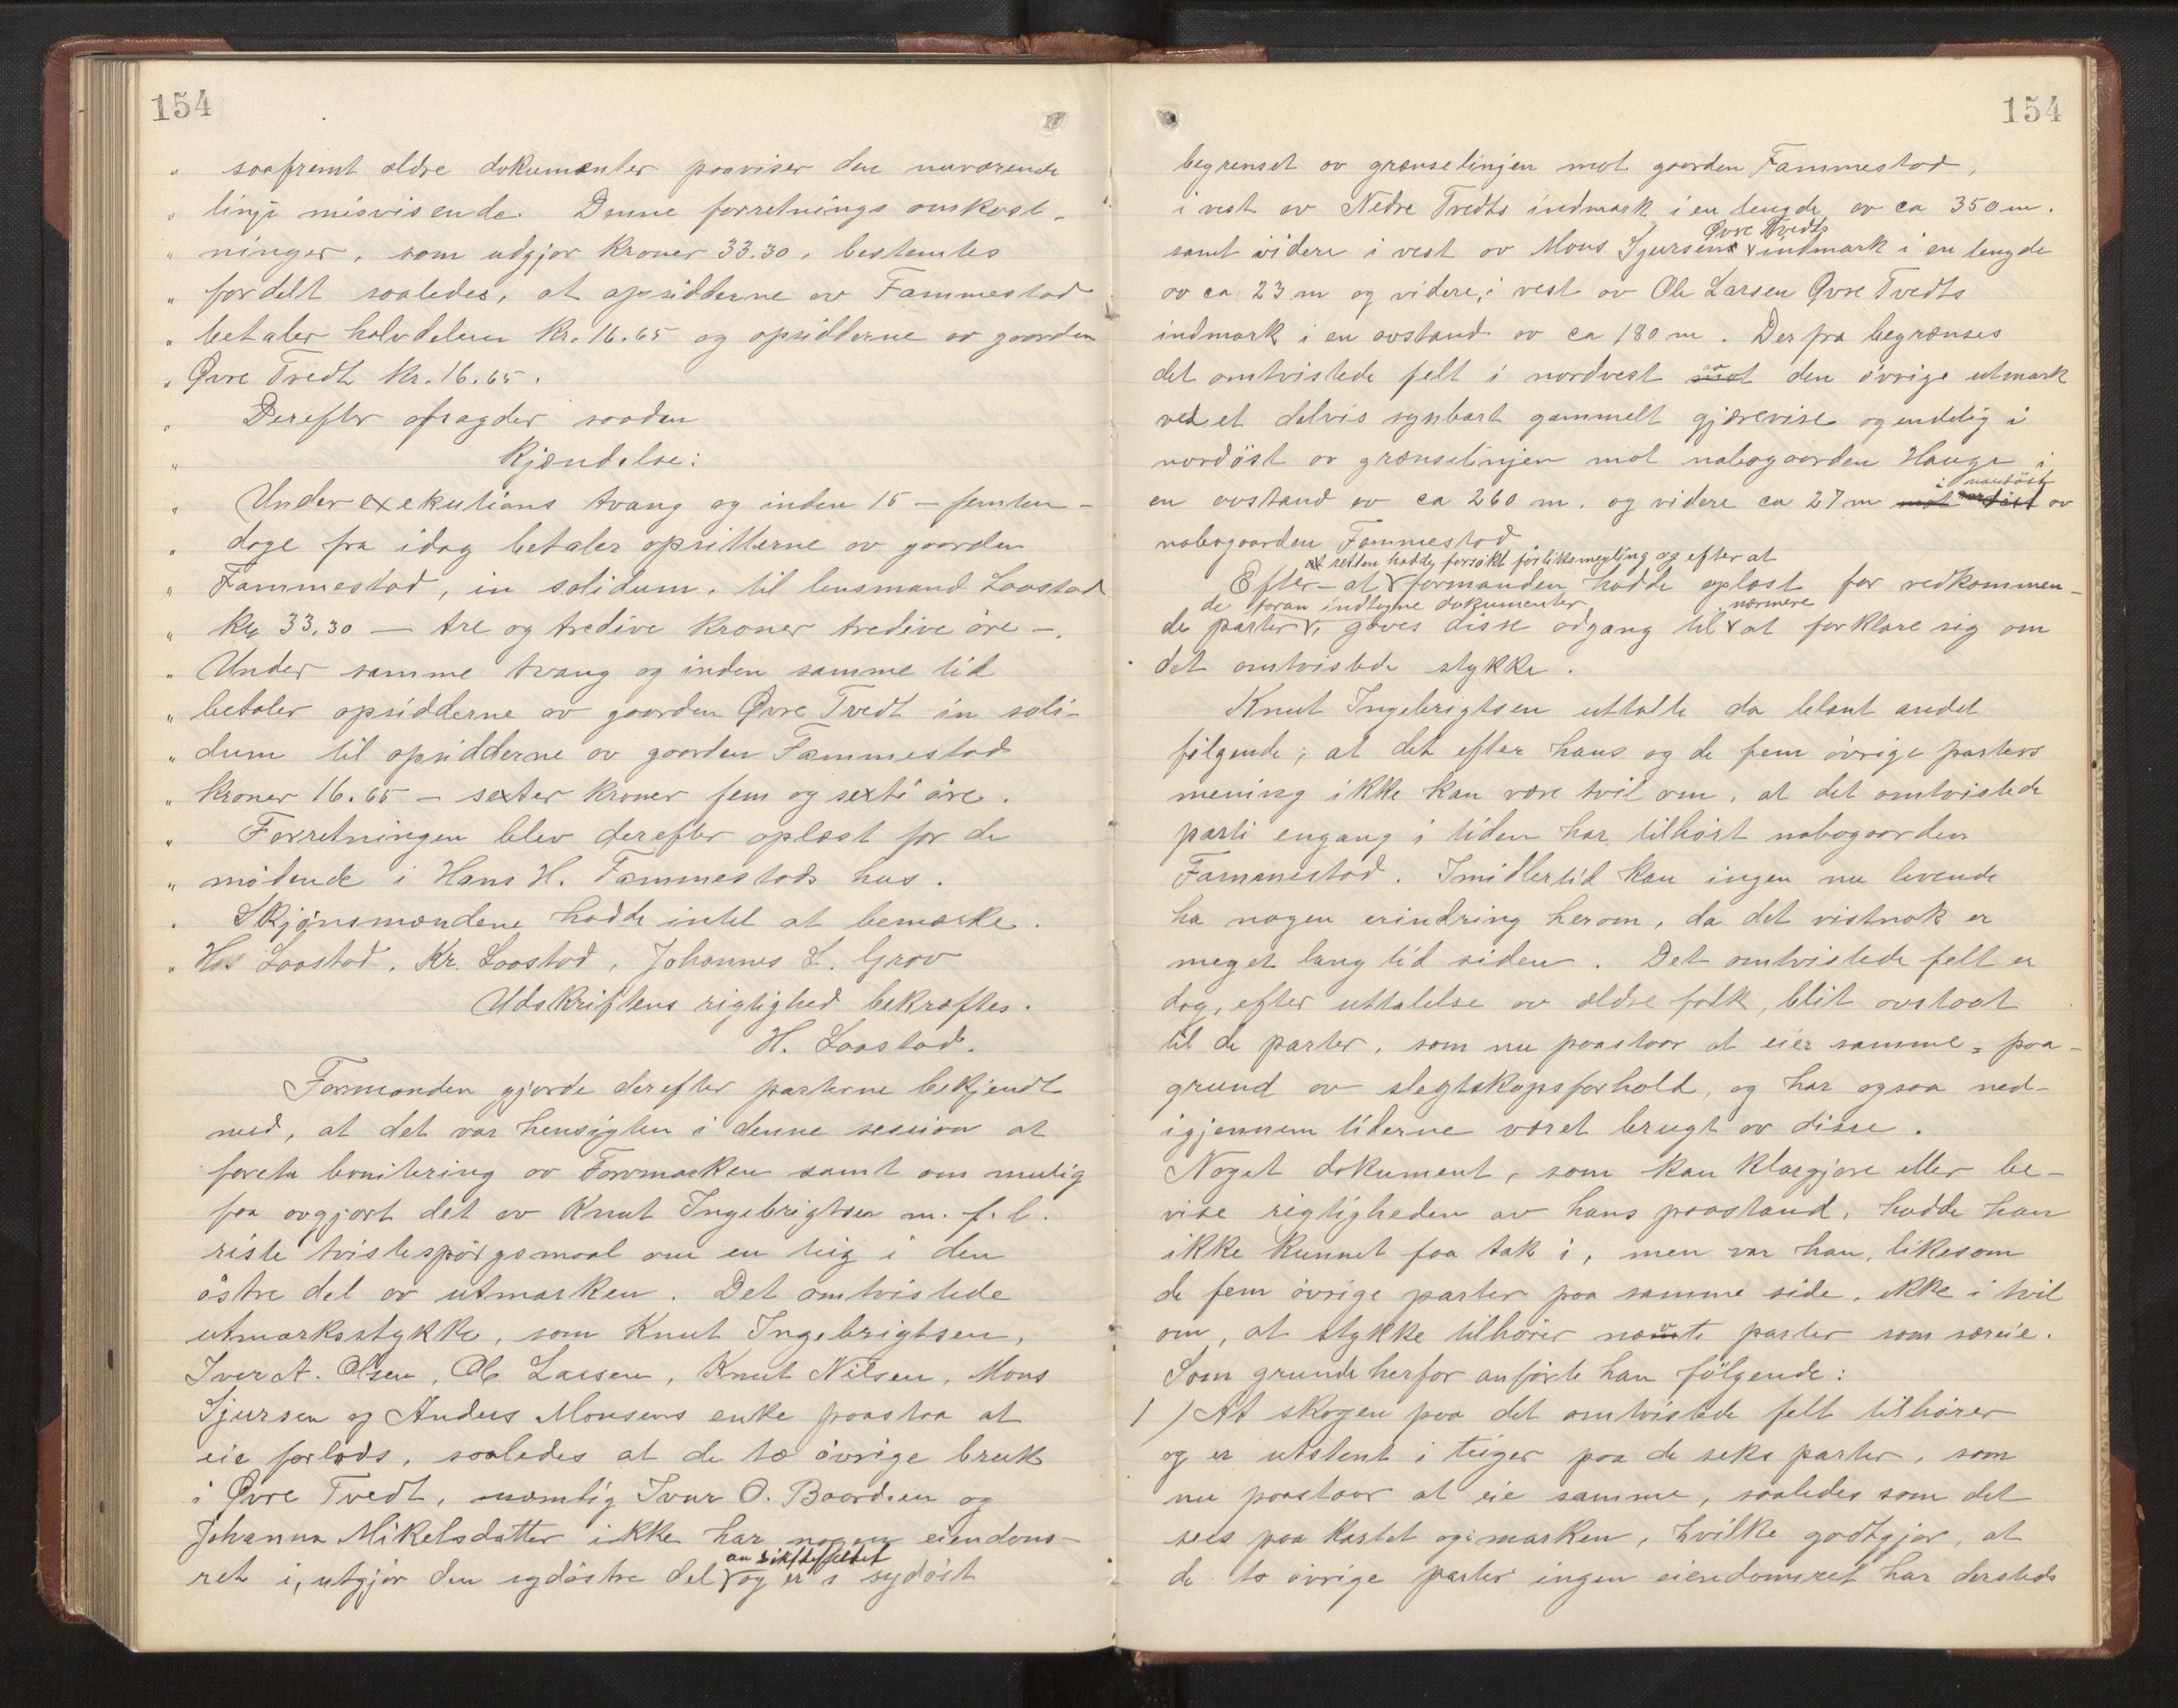 154
" saafremt ældre dokumenter paaviser den nuværende
" linje misvisende. Denne forretnings omkost-
" ninger, som udgjør kroner 33.30, bestemtes
" fordelt saaledes, at opsidderne av Fammestad
" betaler halvdelen kr. 16.65 og opsidderne av gaarden
" Øvre Tvedt kr. 16.65.
" Derefter afsagdes saadan
" Kjændelse:
" Under exekutions tvang og inden 15 - femten -
" dage fra idag betaler opsitterne av gaarden
" Fammestad, in solidum, til lensmand Laastad
" kr 33.30 - tre og tredive kroner tredive øre -.
" Under samme tvang og inden samme tid
" betaler opsidderne av gaarden Øvre Tvedt in soli-
" dum til opsidderne av gaarden Fammestad
" kroner 16.65 - sexten kroner fem og sexti øre.
" Forretningen blev derefter oplæst for de
" mødende i Hans H. Fammestads hus.
" Skjønsmændene hadde intet at bemærke.
" H. Laastad, Kr. Laastad, Johannes L. Grov
Udskriftens rigtighed bekræftes.
H. Laastad.
Formanden gjorde derefter parterne bekjendt
med, at det var hensigten i denne session at
foreta bonitering av Farmarken samt om mulig
faa avgjort det av Knut Ingebrigtsen m. fl.
reiste tvistespørgsmaal om en teig i den
østre del av utmarken. Det omtvistede
utmarksstykke, som Knut Ingebrigtsen,
Iver A. Olsen, Ole Larsen, Knut Nilsen, Mons
Sjursen og Anders Monsens enke paastaar at
eie forlods, saaledes at de to øvrige bruk
i Øvre Tvedt, nemlig Ivar O. Baardsen og
Johanna Mikelsdatter ikke har nogen eiendoms-
av skiftefeltet
ret i, utgjør den sydøstre del og er i sydøst
154
begrenset av grænselinjen mot gaarden Fammestad,
i vest av Nedre Tvedts indmark i en lengde av ca 350 m.
Øvre Tvedts
samt videre i vest av Mons Sjursens indmark i en lengde
av ca 23 m og videre i vest av Ole Larsen Øvre Tvedts
indmark i en avstand av ca 180 m. Derfra begrænses
det omtvistede felt i nordvest mot den øvrige utmark
ved et delvis synbart gammelt gjærevise og endelig i
nordøst av grænselinjen mot nabogaarden Hauge i
i nordøst
en avstand av ca 260 m. og videre ca 27 m mot av
nabogaarden Fammestad.
at retten hadde forsøkt forliksmegling og efter at
Efter at formanden hadde oplæst for vedkommen-
de foran indtagne dokumenter nærmere
de parter, gaves disse adgang til at forklare sig om
det omtvistede stykke.
Knut Ingebrigtsen uttalte da blant andet
følgende; at det efter hans og de fem øvrige parters
mening ikke kan være tvil om, at det omtvistede
parti engang i tiden har tilhørt nabogaarden
Fammestad. Imidlertid kan ingen nu levende
ha nogen erindring herom, da det vistnok er
meget lang tid siden. Det omtvistede felt er
dog, efter uttalelse av ældre folk, blit avstaat
til de parter, som nu paastaar at eie samme, paa-
grund av slegtskapsforhold, og har ogsaa ned-
igjennem tiderne været brugt av disse.
Noget dokument, som kan klargjøre eller be-
vise rigtigheden av hans paastand, hadde han
ikke kunnet faa tak i, men var han, likesom
de fem øvrige parter paa samme side, ikke i tvil
om, at stykke tilhører nævnte parter som særeie.
Som grunde herfor anførte han følgende:
1) At skogen paa det omtvistede felt tilhører
og er utstent i teiger paa de seks parter, som
nu paastaar at eie samme, saaledes som det
sees paa kartet og i marken, hvilke godtgjør, at
de to øvrige parter ingen eiendomsret har dersteds